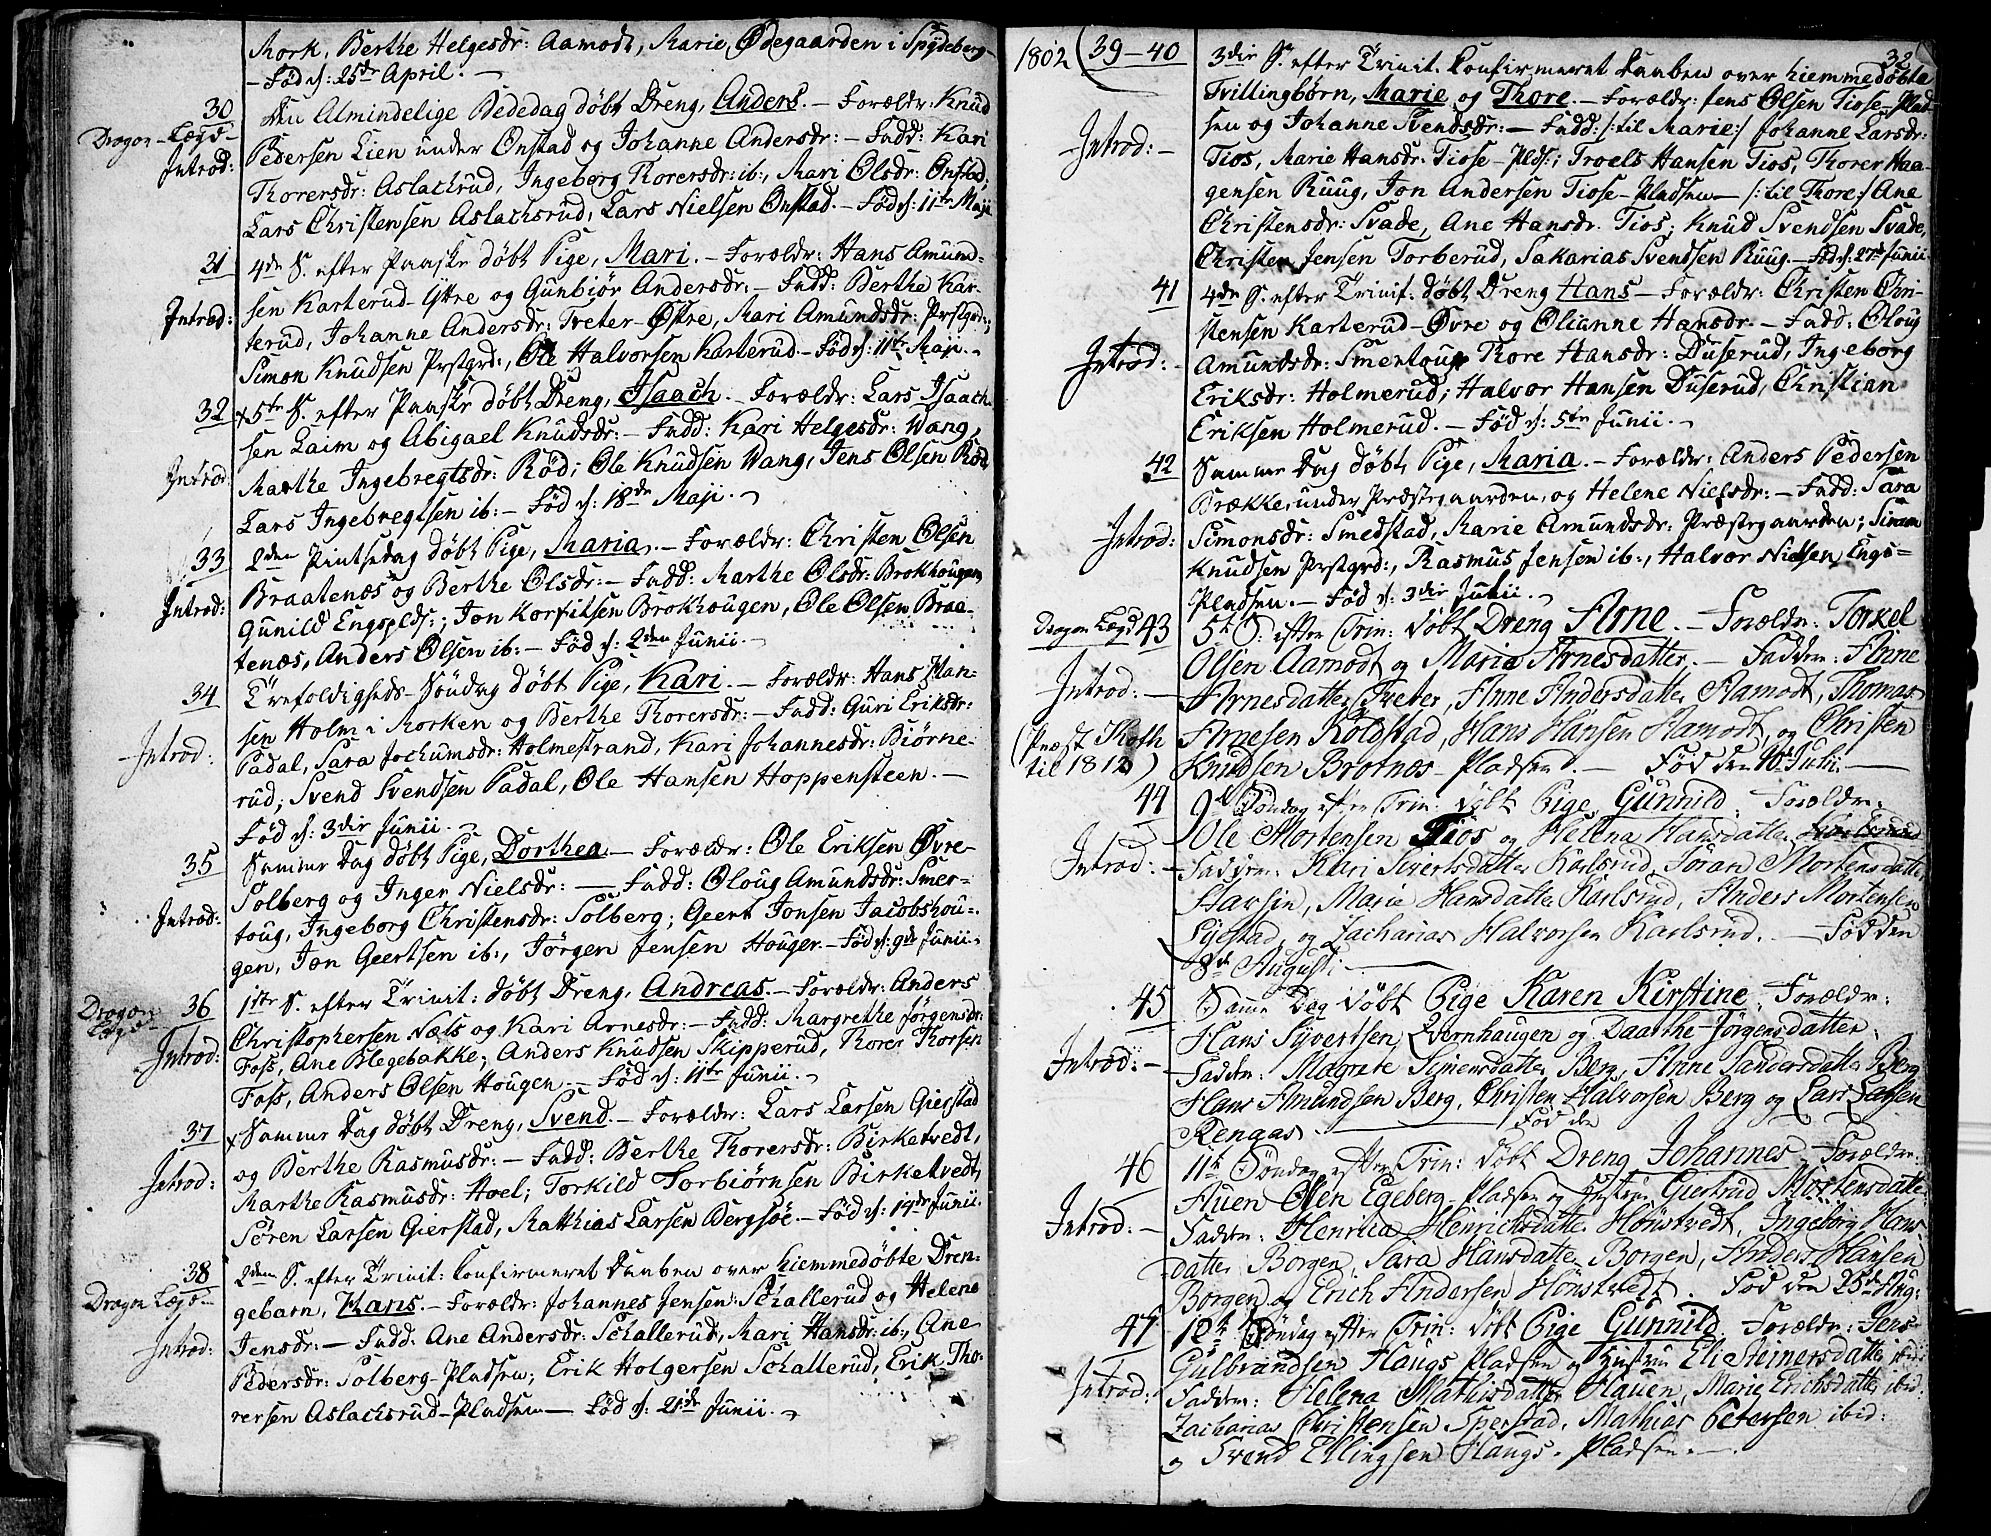 Mork, Berthe Helgesdr: Aamodt, Marie Ødegaarden i Spydeberg
– Fød d: 25de April. –
30 Den Almindelige Bededag døbt Dreng, Anders. – Forældr: Knud
Dragon-Lægd – Pedersen Lien under Onstad og Johanne Andersdr: – Fadd: Kari
Introd: Thorersdr: Aslachrud, Ingeborg Thorersdr: ib:, Mari Olsdr: Onstad,
Lars Christensen Aslachsrud, Lars Nielsen Onstad. – Fød d: 11te Maji
31 4de S. efter Paaske døbt Pige, Mari. – Forældr: Hans Amund-
sen Karterud-Yttre og Gunbiør Andersdr: – Fadd: Berthe Kar-
Introd: terud, Johanne Andersdr: Tveter-Østre, Mari Amundsdr: Præstgrd:,
Simon Knudsen Prstgrd:, Ole Halvorsen Karterud – Fød d: 11te Maji. –
32 x 5te S. efter Paaske døbt Dreng, Isaach. – Forældr: Lars Isaach-
sen Laim og Abigael Knudsdr: – Fadd: Kari Helgesdr: Wang,
Introd: Marthe Ingebregtsdr: Rød; Ole Knudsen Wang, Jens Olsen Rød,
Lars Ingebregtsen ib: – Fød d: 18de Maji. –
33 2den Pintsedag døbt Pige, Maria. – Forældr: Christen Olsen
Braatenæs og Berthe Olsdr: – Fadd: Marthe Olsdr: Brokhougen,
Introd: Gunild Engsplds:; Jon Korfitsen Brokhougen, Ole Olsen Braa-
tenæs, Anders Olsen ib: – Fød d: 2den Junii. –
34 Trefoldigheds-Søndag døbt Pige, Kari. – Forældr: Hans Han-
sen Holm i Morken og Berthe Thorersdr: – Fadd: Guri Eriksdr:
Introd: Padal, Sara Jochumsdr: Holmestrand, Kari Johannesdr: Biørne-
rud; Svend Svendsen Padal, Ole Hansen Hoppensteen. –
Fød d: 3die Junii. –
35 Samme Dag døbt Pige, Dorthea – Forældr: Ole Eriksen Øvre-
Solberg og Inger Nielsdr: – Fadd: Oloug Amundsdr: Smer-
Introd: toug, Ingeborg Christensdr: Solberg; Geert Jonsen Jacobshou-
gen, Jon Geertsen ib:, Jørgen Jensen Houger – Fød d: 9de Junii –
36 1ste S. efter Trinit: døbt Dreng, Andreas – Forældr: Anders
Dragon Lægd – Christophersen Næss og Kari Arnesdr: – Fadd: Margrethe Jørgensdr:
Introd: Foss, Ane Blegebakke; Anders Knudsen Skipperud, Thorer Thorsen
Foss, Anders Olsen Hougen – Fød d: 11te Junii. –
37 x Samme Dag døbt Dreng, Svend. – Forældr: Lars Larsen Gierstad
og Berthe Rasmusdr: – Fadd: Berthe Thorersdr: Birketvedt,
Introd: Marthe Rasmusdr: Hoel; Torkild Torbiørnsen Birketvedt,
Søren Larsen Gierstad, Matthias Larsen Bergsøe – Fød d: 14de Junii.
38 2den S. efter Trinit: Confirmeret Daaben over hiemmedøbte Dren-
Dragon Lægd – gebarn, Hans. – Forældr: Johannes Jensen Schallerud og Helene
Introd: Jensdr: – Fadd: Ane Andersdr: Schallerud, Mari Hansdr: ib:, Ane
Pedersdr: Solberg-Pladsen; Erik Holgersen Schallerud, Erik Tho-
rersen Aslachsrud-Pladsen – Fød d: 21de Junii. –
32
1802 (39–40 3die S. efter Trinit. Confirmeret Daaben over hiemmedøbte
Tvillingbørn, Marie og Thore. – Forældr: Jens Olsen Tiose-Plad-
Introd: – sen og Johanne Svendsdr: – Fadd: /: til Marie :/ Johanne Larsdr:
Tios, Marie Hansdr: Tiose-Plds:; Troels Hansen Tios, Thorer Haa-
gensen Ruug, Jon Andersen Tiose-Pladsen – /: til Thore :/ Ane
Christensdr: Svade, Ane Hansdr. Tios; Knud Svendsen Svade,
Christen Jensen Torberud, Sakarias Svendsen Ruug – Fød d: 27de Junii
41 4de S. efter Trinit: døbt Dreng Hans – Forældr: Christen Chri-
stensen Karterud-Øvre og Olianne Hansdr. – Fadd: Oloug
Introd: Amundsdr: Smertoug, Thore Hansdr: Duserud, Ingeborg
Eriksdr: Holmerud; Halvor Hansen Duserud, Christian
Eriksen Holmerud. – Fød d: 5te Junii. –
42 Samme Dag døbt Pige, Maria. – Forældr: Anders Pedersen
Brække, under Præstegaarden, og Helene Nielsdr: – Fadd: Sara
Introd: Simonsdr: Smedstad, Marie Amundsdr: Præstegaarden; Simon
Knudsen Prstgrd:, Rasmus Jensen ib:, Halvor Nielsen Engs-
Pladsen. – Fød d: 3die Junii. –
Dragon Lægd 43 5te S. efter Trin: døbt Dreng Arne. – Forældre: Torkel
Olsen Aamodt og Maria Arnesdatter. – Faddere: Anne
Introd: – Arnesdatter Tveter, Anne Andersdatter Aamodt, Thomas
(Præst Koth Arnesen Koldstad, Hans Hansen Aamodt, og Christen
til 1812) Knudsen Brotnæs-Pladsen. – Fød den 10de Julii. –
44 9de Søndag efter Trin: døbt Pige Gunnild. Forældre:
Ole Mortensen Tios og Helena Hansdatter
Introd: – Faddere: Kari Sivertsdatter Karlsrud, Søran Mortensdatter
Marie Hansdatter Karlsrud, Anders Mortensen
og Zacharias Halvorsen Karlsrud. – Fød den
8de August. –
45 Samme Dag døbt Pige Karen Kirstine. Forældre:
Hans Syvertsen Qvernhaugen og Daarthe Jørgensdatter
Introd: – Faddere: Magrete Simensdatter Berg, Anne Sandersdatter Berg
Hans Amundsen Berg, Christen Halvorsen Berg og Lars Larsen
Rengas. – Fød den
46 11te Søndag efter Trin: døbt Dreng Johannes – Forældre:
Auen Olsen Egeberg-Pladsen og Hustrue Giertrud Mortensdatter
Introd: – Faddere: Henrica Henrichsdatter Hønstvedt, Ingeborg Hans-
datter Borgen, Sara Hansdatter Borgen, Anders Hansen
Borgen og Erich Andersen Hønstvedt. Fød den 25de Aug:
47 12te Søndag efter Trin: døbt Pige Gunnild. Forældre: Jens
Gulbrandsen Haugs Pladsen og Hustrue Eli Steinersdatter ibid:
Introd: Faddere: Helena Mathisdatter Hauen, Marie Erichsdatter ibid:
Zacharias Christensen Sperstad, Mathias Petersen ibid:
og Svend Ellingsen Haugs-Pladsen. –